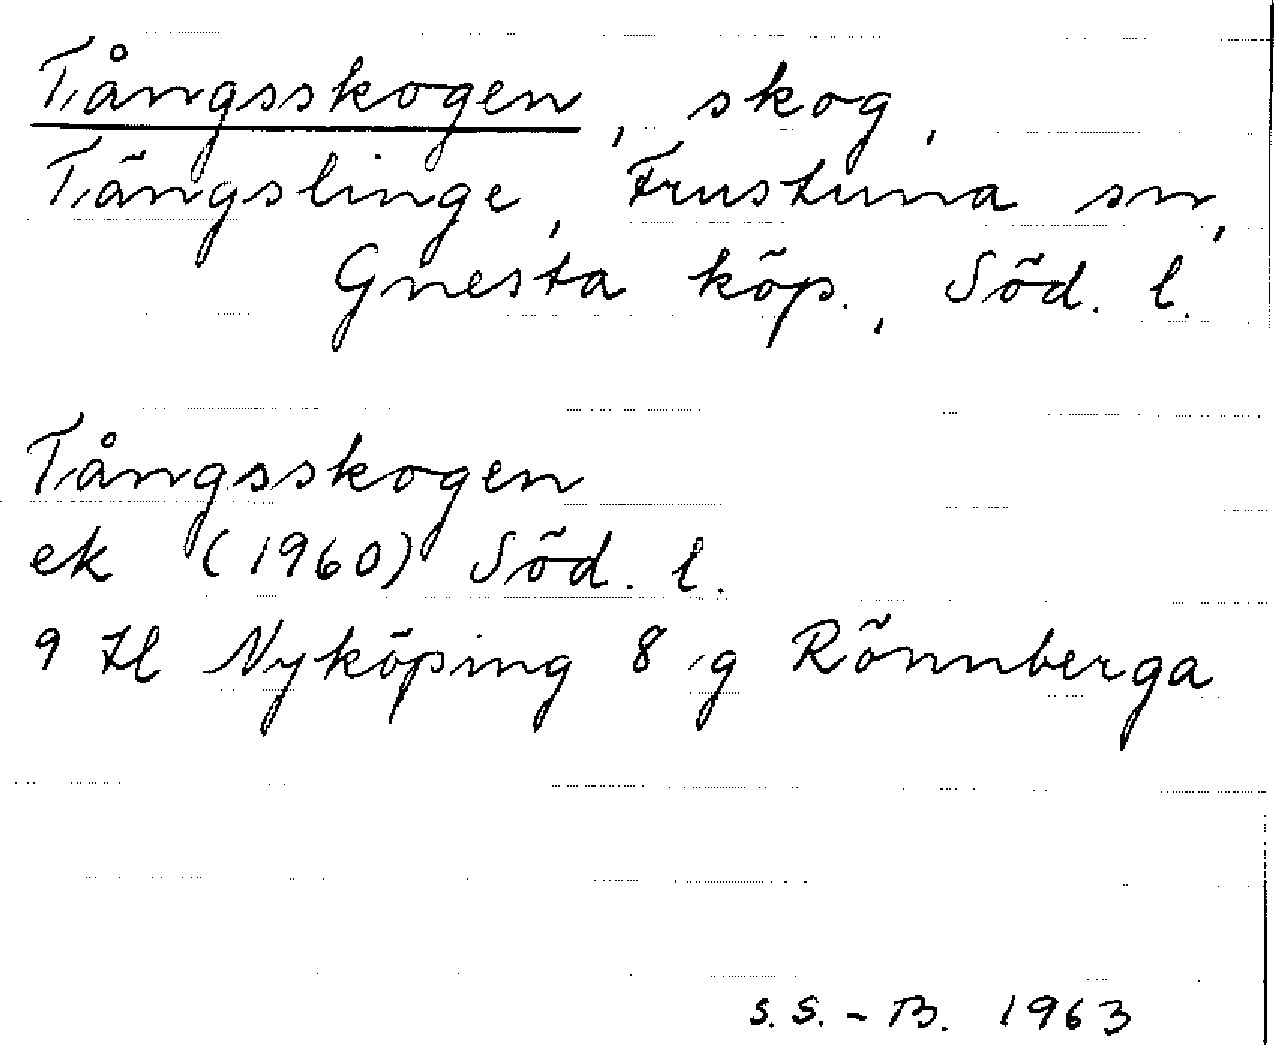 Tångsskogen, skog,
Tängslinge, Frustuna sn,
Gnesta köp., Söd. l.
Tångsskogen
ek (1960) Söd. l.
9 H Nyköping 8 g Rönnberga
S.S.-B. 1963